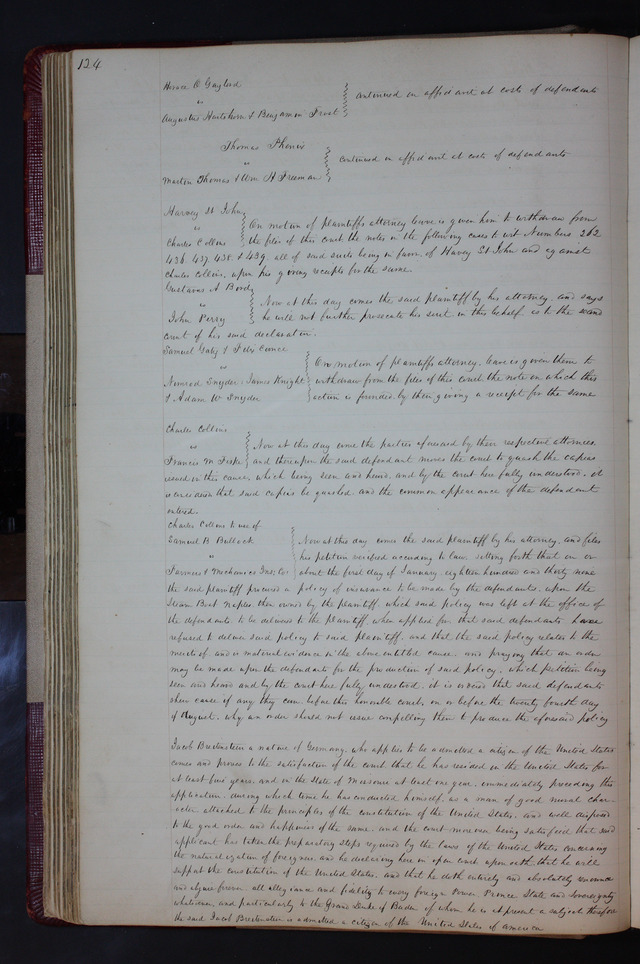 124
Horace O Gaylord
vs
continued on affidavit at costs of defendants
Augustus Hartshorn & Benjamin Frost
Thomas Phenix
vs
continued on affidavit at costs of defendants
Martin Thomas & Wm H Freeman
Harvey St John
vs
On motion of plaintiffs attorney leave is given him to withdraw from
Charles Collins the files of this court the notes in the following cases to wit Numbers 262
436. 437. 438. & 439. all of said suits being in favor of Harvey St John and against
Charles Collins, upon his giving receipts for the same.
Gustavus A Bord
vs
Now at this day comes the said plaintiff by his attorney and says
John Perry
he will not further prosecute his suit in this behalf as to the second
count of his said declaration.
Samuel Gaty & Felix
vs
On motion of plaintiffs attorney. leave is given them to
Nimrod Snyder. James Knight withdraw from the files of this court the note on which this
& Adam W Snyder action is founded by their giving a receipt for the same
Charles Collins
vs
Now at this day come the parties aforesaid by their respective attornies
Francis M and thereupon the said defendant moves the court to quash the capias
issued in this cause, which being seen and heard, and by the court here fully understood, it
is considered that said capias be quashed and the common appearance of the defendant
entered.
Charles Collins to use of
Samuel B Bullock
Now at this day comes the said plaintiff by his attorney, and files
vs
his petition verified according to law setting forth that on or
Farmers & Mechanics Ins. Co about the first day of January. eighteen hundred and thirty nine
the said plaintiff procured a policy of insurance to be made by the defendants, upon the
Steam Boat Naples, then owned by the plaintiff, which said policy was left at the office of
the defendants to be delivered to the plaintiff, when applied for that said defendants have
refused to deliver said policy to said plaintiff, and that the said policy relates to the
merits of and is material evidence in the above entitled cause. and praying that an order
may be made upon the defendants for the production of said policy. which petition being
seen and heard and by the court here fully understood, it is ordered that said defendants
shew cause if any they can, before this honorable court, on or before the twenty fourth day
of August, why an order should not issue compelling them to produce the aforesaid policy
Jacob Breitenstein a native of Germany. who applies to be admitted a citizen of the United States
comes and proves to the satisfaction of the court that he has resided in the United States for
at least five years, and in the State of Missouri at least one year. immediately preceding this
application. during which time he has conducted himself, as a man of good moral char-
acter attached to the principles of the constitution of the United States, and well disposed
to the good order and happiness of the same. and the court moreover being satisfied that said
applicant has taken the preparatory steps required by the laws of the United States concerning
the naturalization of foreigners, and he declaring here in open court upon oath, that he will
support the constitution of the United States, and that he doth entirely and absolutely renounce
and abjure forever. all allegiance and fidelity to every foreign Power Prince State and Sovereignty
whatsoever, and particularly to the Grand Duke of Baden of whom he is at present a subject therefore
the said Jacob Breitenstein is admitted a citizen of the United States of America